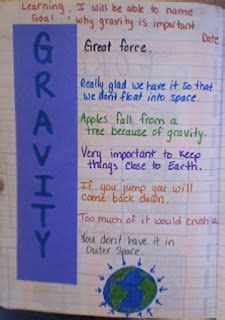 Learning : I will be able to name
Goal why gravity is important
Date
GRAVITY
Great force.
Really glad we have it so that
we dont float into space.
Apples fall from a
tree because of gravity.
Very important to keep
things close to Earth.
If you jump you will
come back down.
Too much of it would crush
You dont have it in
Outer Space.